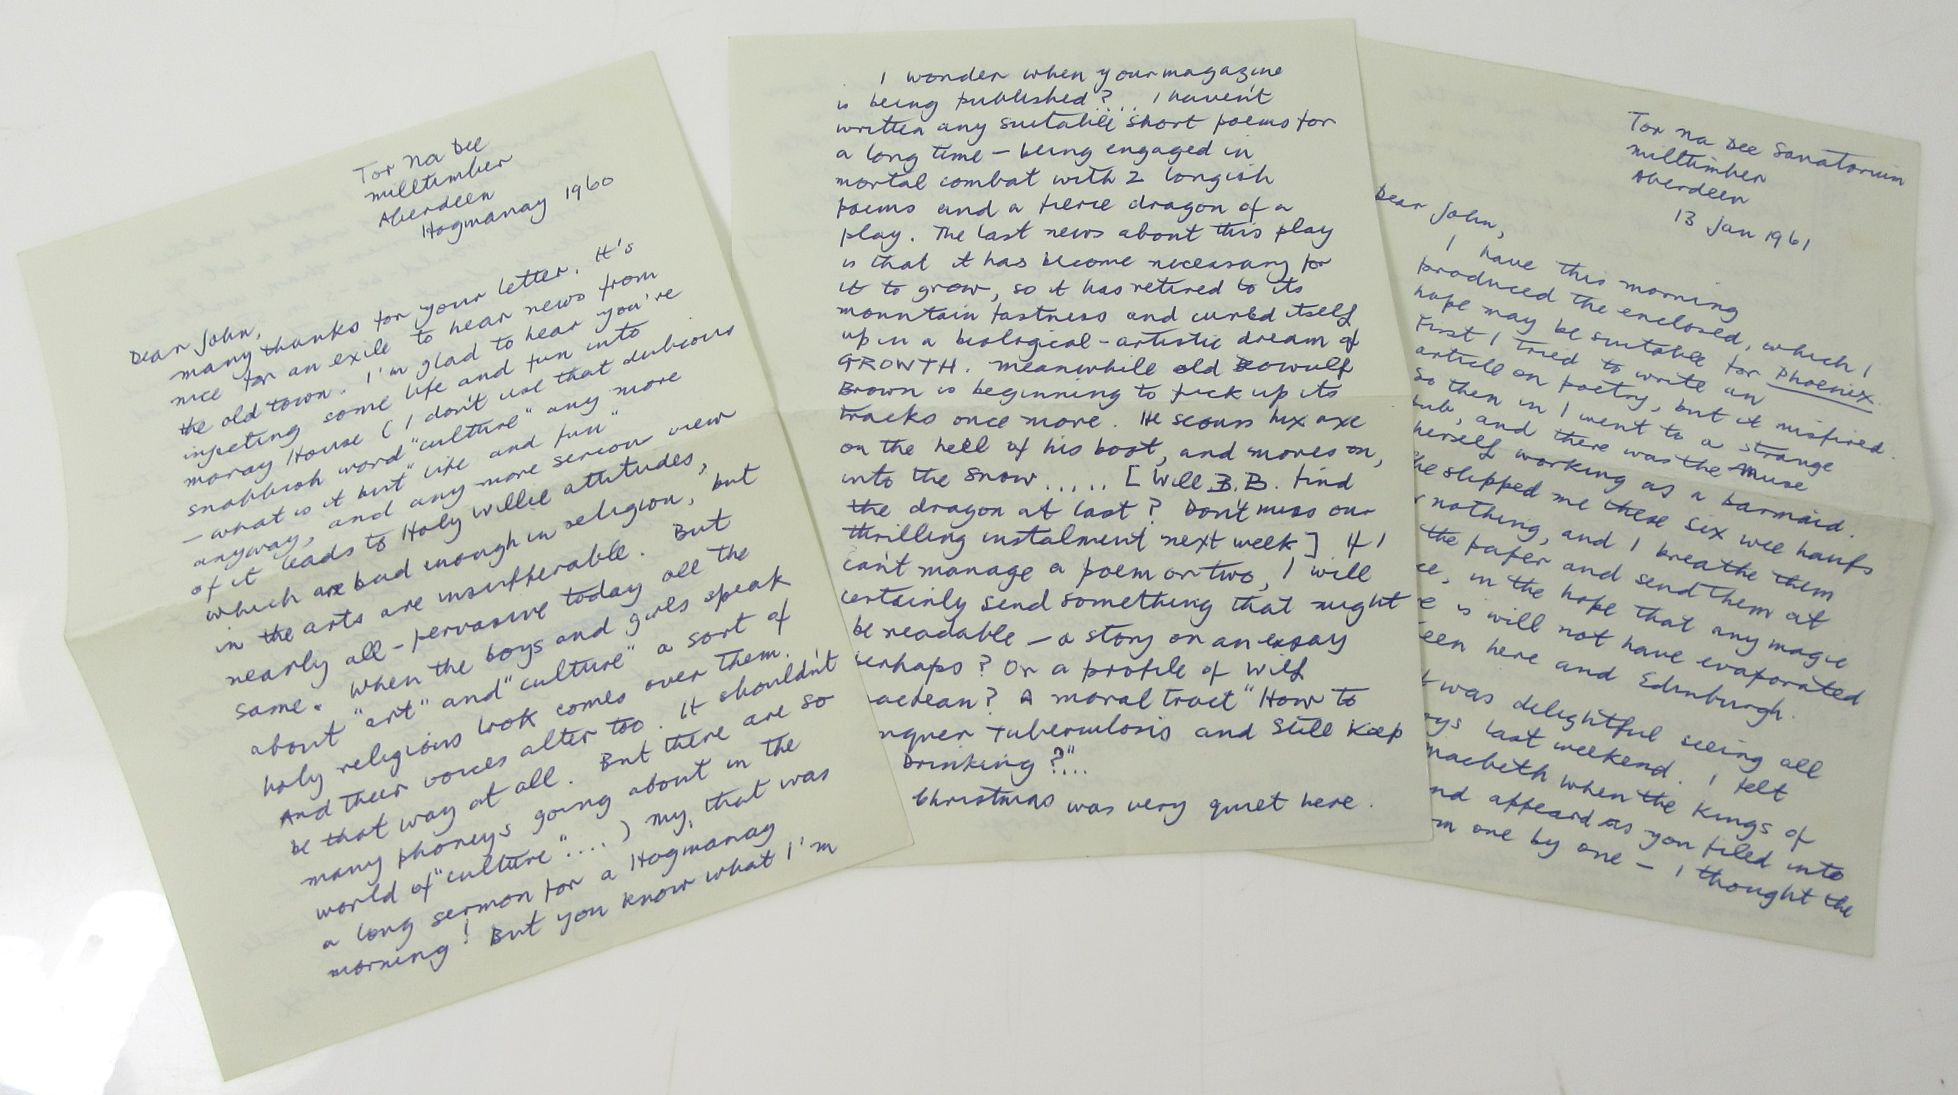 Tor Na Dee
Milltimber
Aberdeen
Hogmanay 1960
Dear John,
Many thanks for your letter. It's
nice for an exile to hear news from
the old town. I'm glad to hear you're
injecting some life and fun into
Moray House (I don't use that dubious
snobbish word "culture" any more
– what is it but "life and fun"
anyway, and any more serious view
of it leads to Holy Willie attitudes,
which are bad enough in religion, but
in the arts are insufferable. But
nearly all-pervasive today all the
same. When the boys and girls speak
about "art" and "culture" a sort of
holy religious look comes over them.
And their voices alter too. It shouldn't
be that way at all. But there are so
many phoneys going about in the
world of "culture"....) My, that was
a long sermon for a Hogmanay
morning! But you know what I'm
I wonder when your magazine
is being published?... I haven't
written any suitable short poems for
a long time – being engaged in
mortal combat with 2 longish
poems and a fierce dragon of a
play. The last news about this play
is that it has become necessary for
it to grow, so it has retired to its
mountain fastness and curled itself
up in a biological-artistic dream of
GROWTH. Meanwhile old Beowulf
Brown is beginning to pick up its
tracks once more. He scours his axe
on the heel of his boot, and moves on,
into the snow..... [Will B.B. find
the dragon at last? Don't miss our
thrilling instalment next week] If I
can't manage a poem or two, I will
certainly send something that might
be readable – a story or an essay
perhaps? Or a profile of Wilf
A moral tract "How to
nquer Tuberculosis and Still Keep
Drinking?"...
Christmas was very quiet here.
Tor Na Dee Sanatorium
Milltimber
Aberdeen
13 Jan 1961
Dear John,
I have this morning
produced the enclosed, which I
hope may be suitable for Phoenix.
First I tried to write an
article on poetry, but it misfired.
So then in I went to a strange
pub, and there was the Muse
herself working as a barmaid.
She slipped me these six wee haufs
for nothing, and I breathe them
the paper and send them at
ce, in the hope that any magic
e is will not have evaporated
een here and Edinburgh.
t was delightful seeing all
oys last weekend. I felt
Macbeth when the Kings of
nd appeared as you filed into
m one by one – I thought the